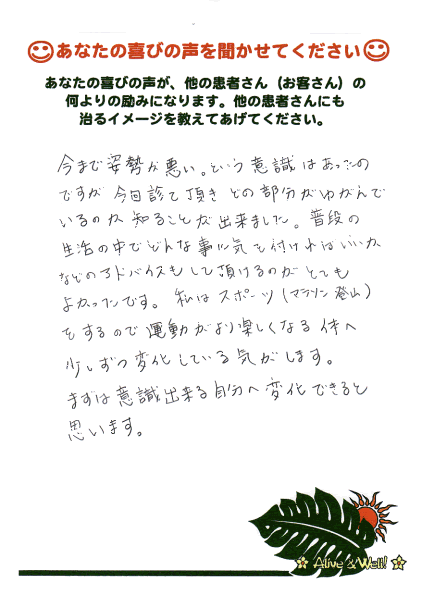 あなたの喜びの声を聞かせてください
あなたの喜びの声が、他の患者さん（お客さん）の
何よりの励みになります。他の患者さんにも
治るイメージを教えてあげてください。
今まで姿勢が悪い。という意識はあったの
ですが今回診て頂きどの部分がゆがんで
いるのか知ることが出来ました。普段の
生活の中でどんな事に気を付ければいいか
などのアドバイスもして頂けるのがとても
よかったです。私はスポーツ(マラソン登山)
をするので運動がより楽しくなる体へ
少しずつ変化している気がします。
まずは意識出来る自分へ変化できると
思います。
Alive & Well!